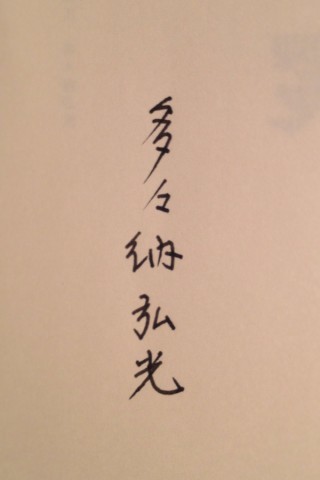 多々納弘光